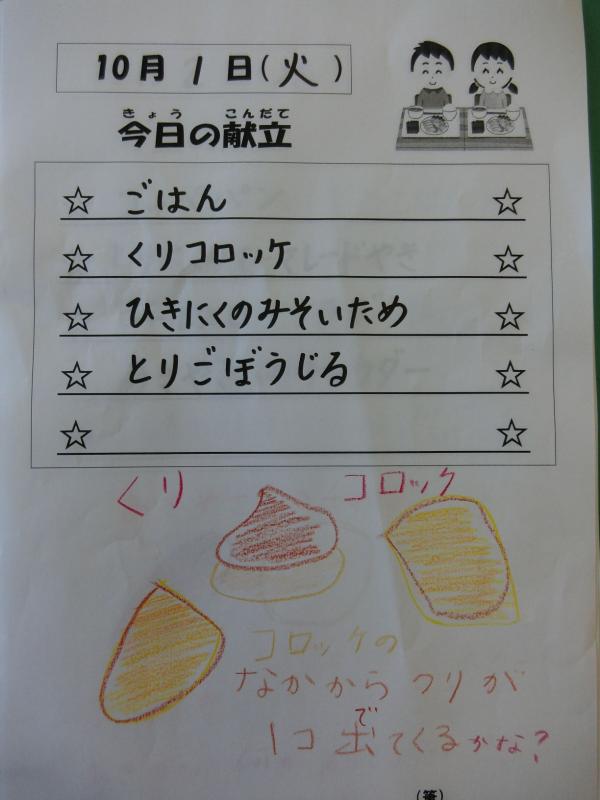 10月 1日(火)
きょう こんだて
今日の献立
☆ ごはん ☆
☆ くりコロッケ ☆
☆ ひきにくのみそいため ☆
☆ とりごぼうじる ☆
☆ ☆
くり コロッケ
コロッケの
なかから クリが
で
1コ出てくるかな?